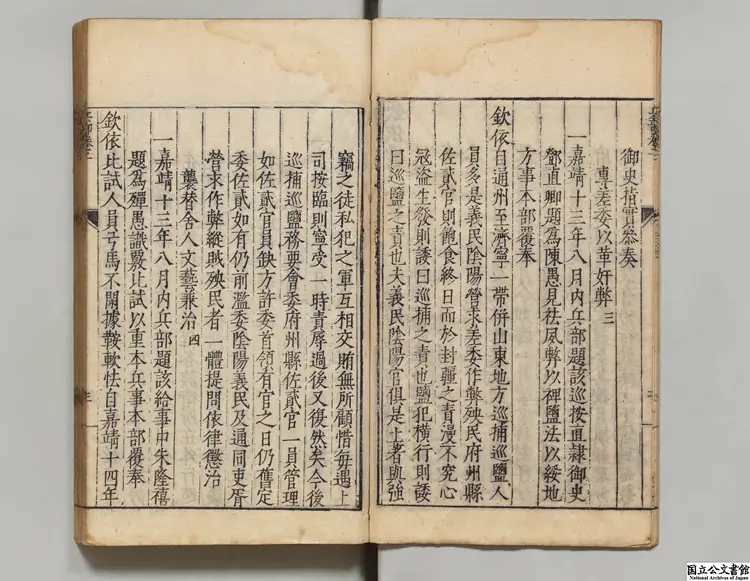 御史指實參奏
專差委以革奸弊三
一嘉靖十三年八月內兵部題該巡按直隸御史
鄧直卿題為陳愚見袪夙弊以裨鹽法以綏地
方事本部覆奉
欽依自通州至濟寧一帶併山東地方巡捕巡鹽人
員多是義民陰陽營求差委作弊殃民府州縣
佐貳官則飽食終日而於封疆之責漫不究心
冦盜生發則諉曰巡捕之責也鹽犯橫行則諉
曰巡鹽之責也夫義民陰陽官俱是土著與強
竊之徒私犯之軍互相交賄無所顧惜每遇上
司按臨則寧受一時責辱過後又復然矣今後
巡捕巡鹽務要會委府州縣佐貳官一員管理
如佐貳官員缺方許委首領有官之日仍舊定
委佐貳如有仍前濫委陰陽義民及通同吏胥
營求作弊縱賊殃民者一體提問依律懲治
襲替舍人文藝兼治四
一嘉靖十三年八月內兵部題該給事中朱隆禧
題為殫愚識嚴比試以重本兵事本部覆奉
欽依比試人員弓馬不閑據鞍軟怯自嘉靖十四年
国立公文書館
National Archives of Japan